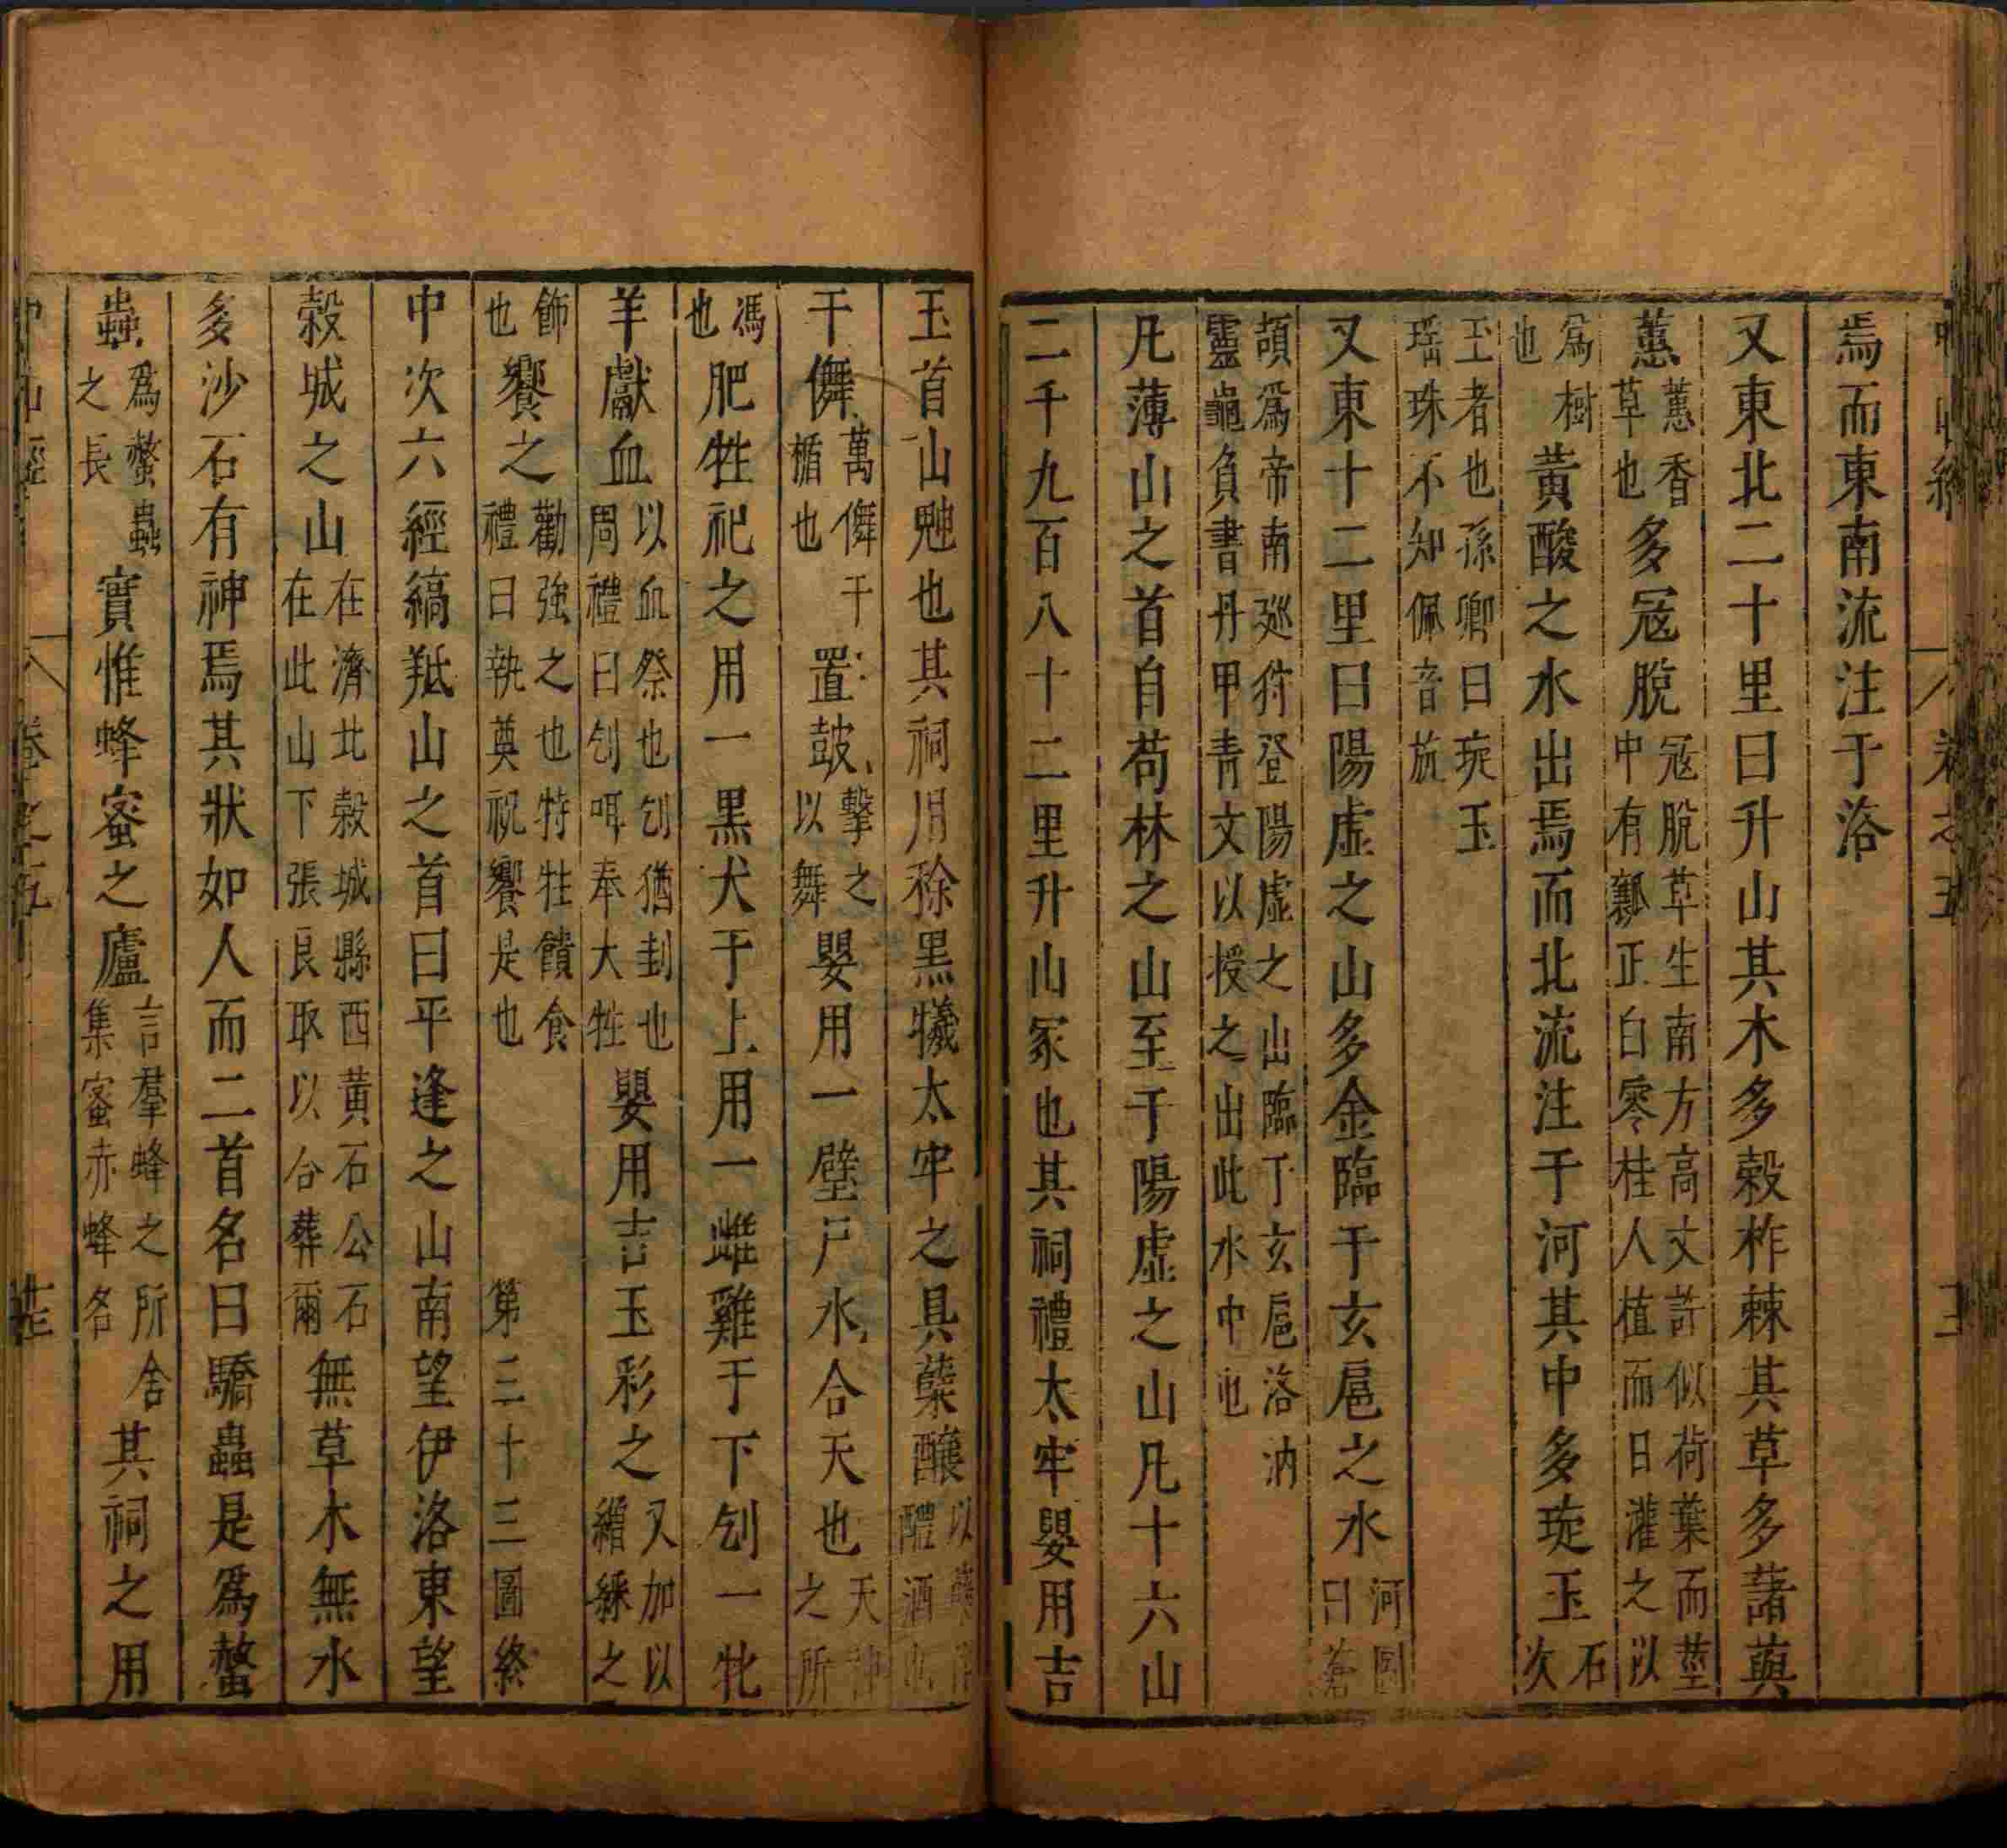 焉而東南流注于洛
又東北二十里曰升山其木多榖柞棘其草多藷藇
蕙蕙香草也多冦脫冦脫草生南方高丈許似荷葉而莖中有瓤正白零桂人植而日灌之以
爲樹也黃酸之水出焉而北流注于河其中多琁玉石次
玉者也孫卿曰琁玉瑶珠不知佩音旋
又東十二里曰陽虛之山多金臨于玄扈之水河圖曰蒼
頡爲帝南廵狩登陽虛之山臨于玄扈洛汭靈龜負書丹甲青文以授之出此水中也
凡薄山之首自苟林之山至于陽虛之山凡十六山
二千九百八十二里升山冢也其祠禮太牢嬰用吉
玉首山䰠也其祠用稌黑犧太牢之具蘖釀以蘖作醴酒也
干儛萬儛干楯也置鼓擊之以舞嬰用一璧尸水合天也天神之所
馮也肥牲祀之用一黑犬于上用一雌雞于下刉一牝
羊獻血以血祭也刉猶刲也周禮曰刉咡奉大牲嬰用吉玉彩之又加以繒綵之
飾也饗之勸強之也特牲饋食禮曰執奠祝饗是也 第三十三圖終
中次六經縞羝山之首曰平逢之山南望伊洛東望
榖城之山在濟北榖城縣西黃石公石在此山下張良取以合葬爾無草木無水
多沙石有神焉其狀如人而二首名曰驕蟲是爲螫
蟲爲螫蟲之長實惟蜂蜜之廬言羣蜂之所舍集蜜赤蜂名其祠之用